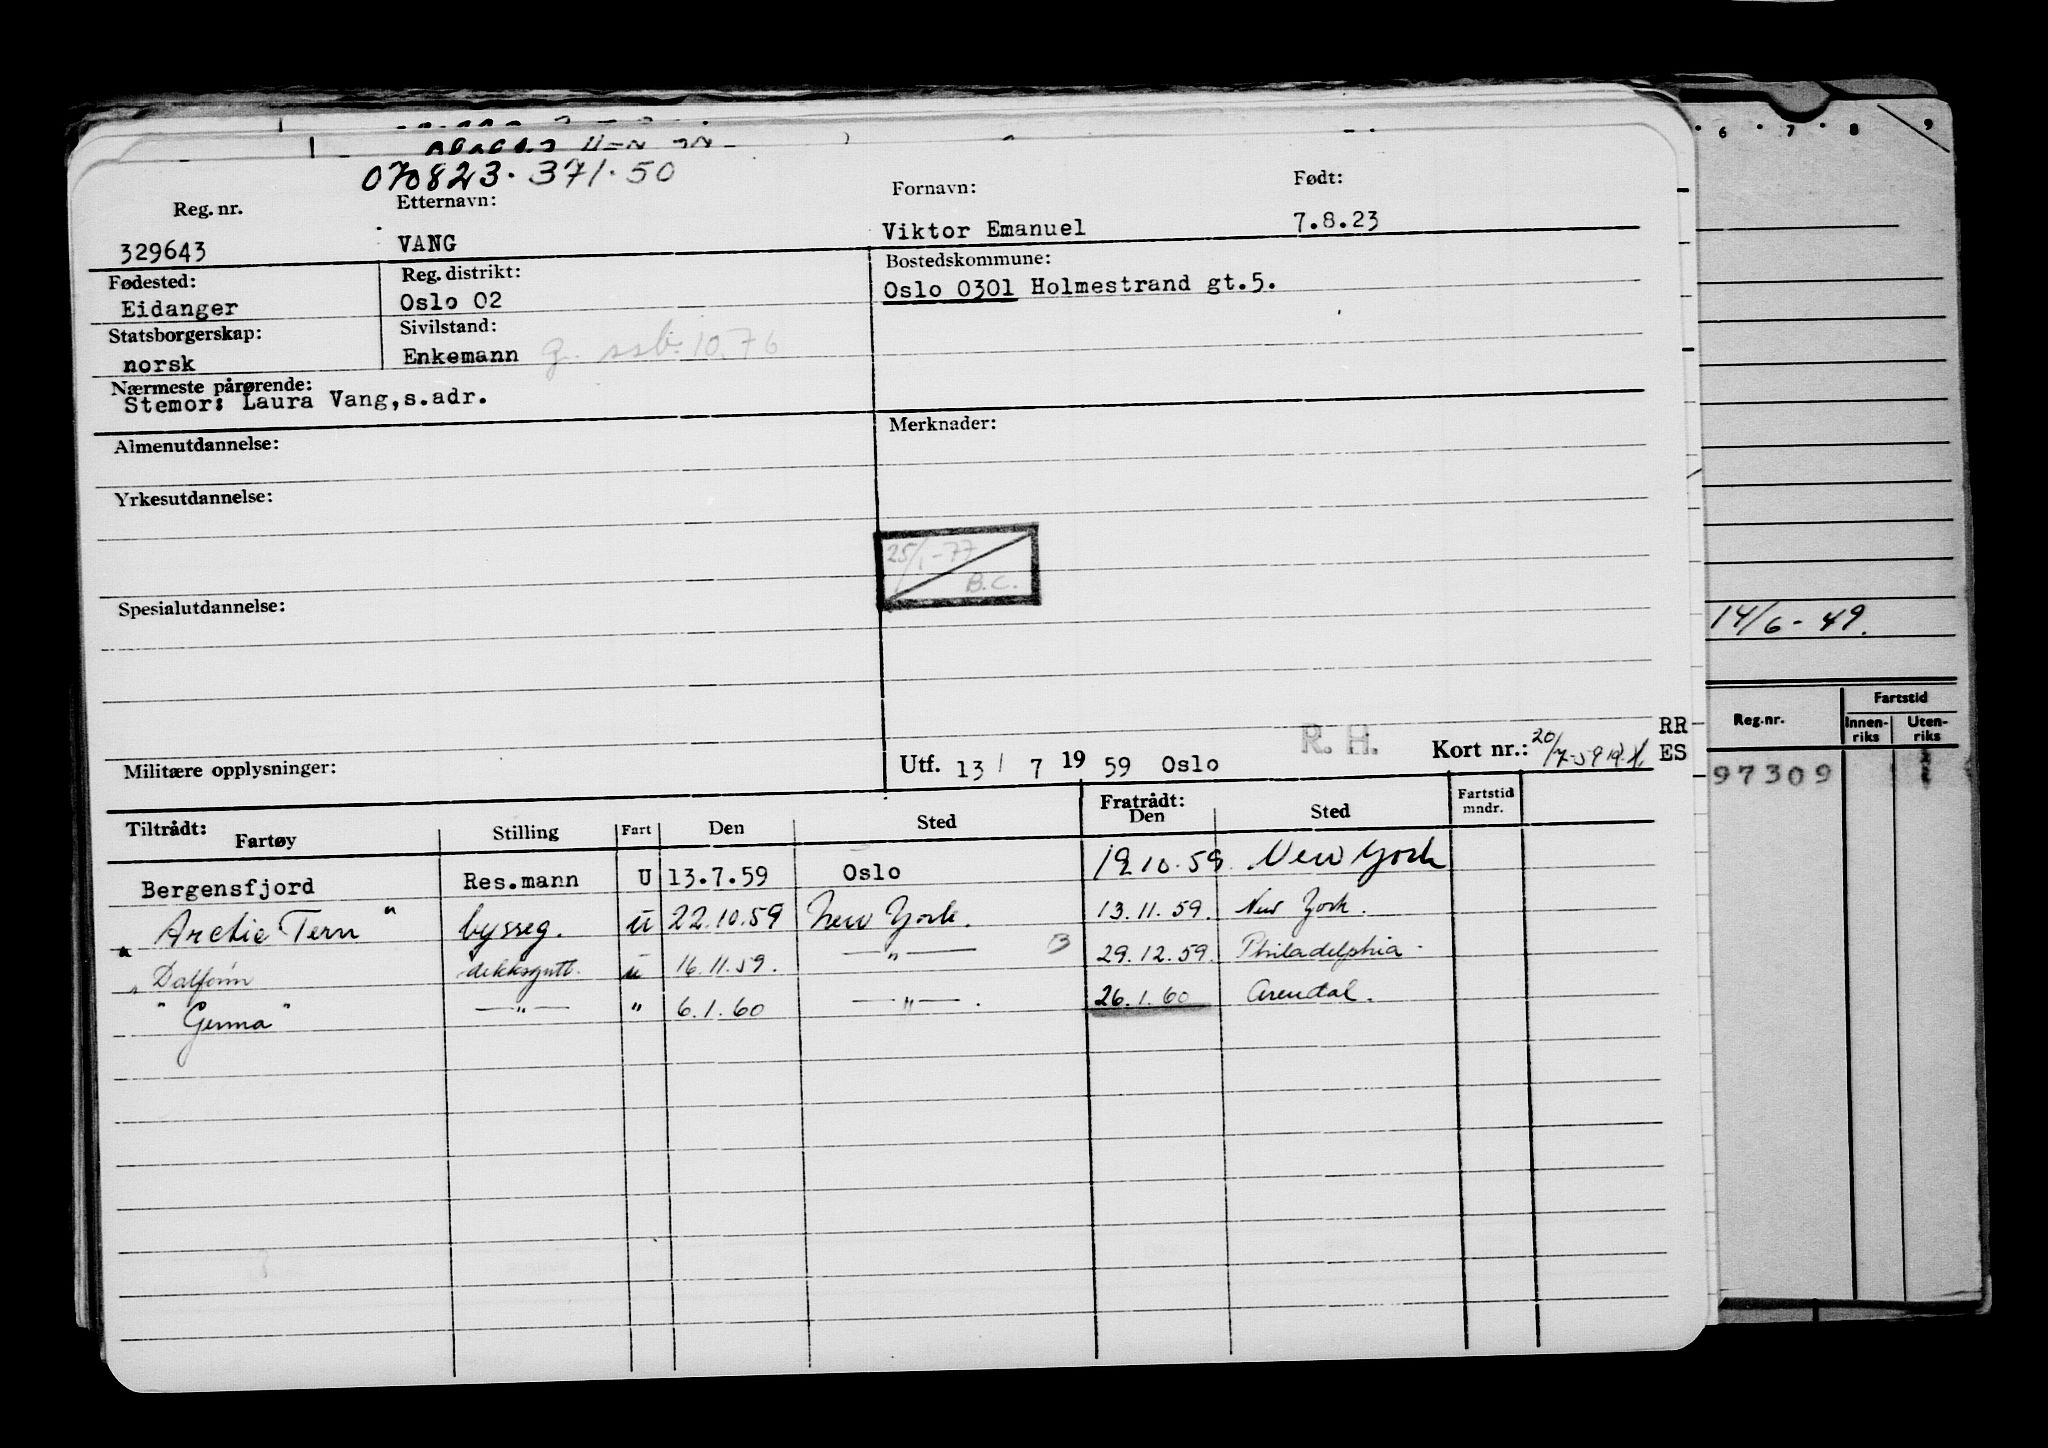 070823.371.50
Reg. nr. Etternavn: Fornavn: Født:
329643 VANG Viktor Emanuel 7.8.23
Fødested: Reg. distrikt: Bostedskommune:
Eidanger Oslo 02 Oslo 0301 Holmestrand gt.5.
Statsborgerskap: Sivilstand:
norsk Enkemann g. ssb. 10.76
Nærmeste pårørende:
Stemor: Laura Vang,s.adr.
Almenutdannelse: Merknader:
Yrkesutdannelse:
25/1-77
B.C.
Spesialutdannelse:
Militære opplysninger:
Utf. 13/ 7 19 59 Oslo R. H. Kort nr.: 20/7-59 RR
ES
Tiltrådt: Fratrådt:
Fartøy Stilling Fart Den Sted Den Sted Fartstid mndr.
Bergensfjord Res.mann U 13.7.59 Oslo 19.10.59 New York
" Arctic Tern " bysseg. u 22.10.59 New York. 13.11.59. New York.
" Dalfonn dekksgutt. u 16.11.59. —"— B 29.12.59. Philadelphia.
" Germa " —"— " 6.1.60 —"—. 26.1.60 Arendal.
6 . 7 . 8 . 9
14/6-49.
Reg.nr. Fartstid
Innenriks Utenriks
97309